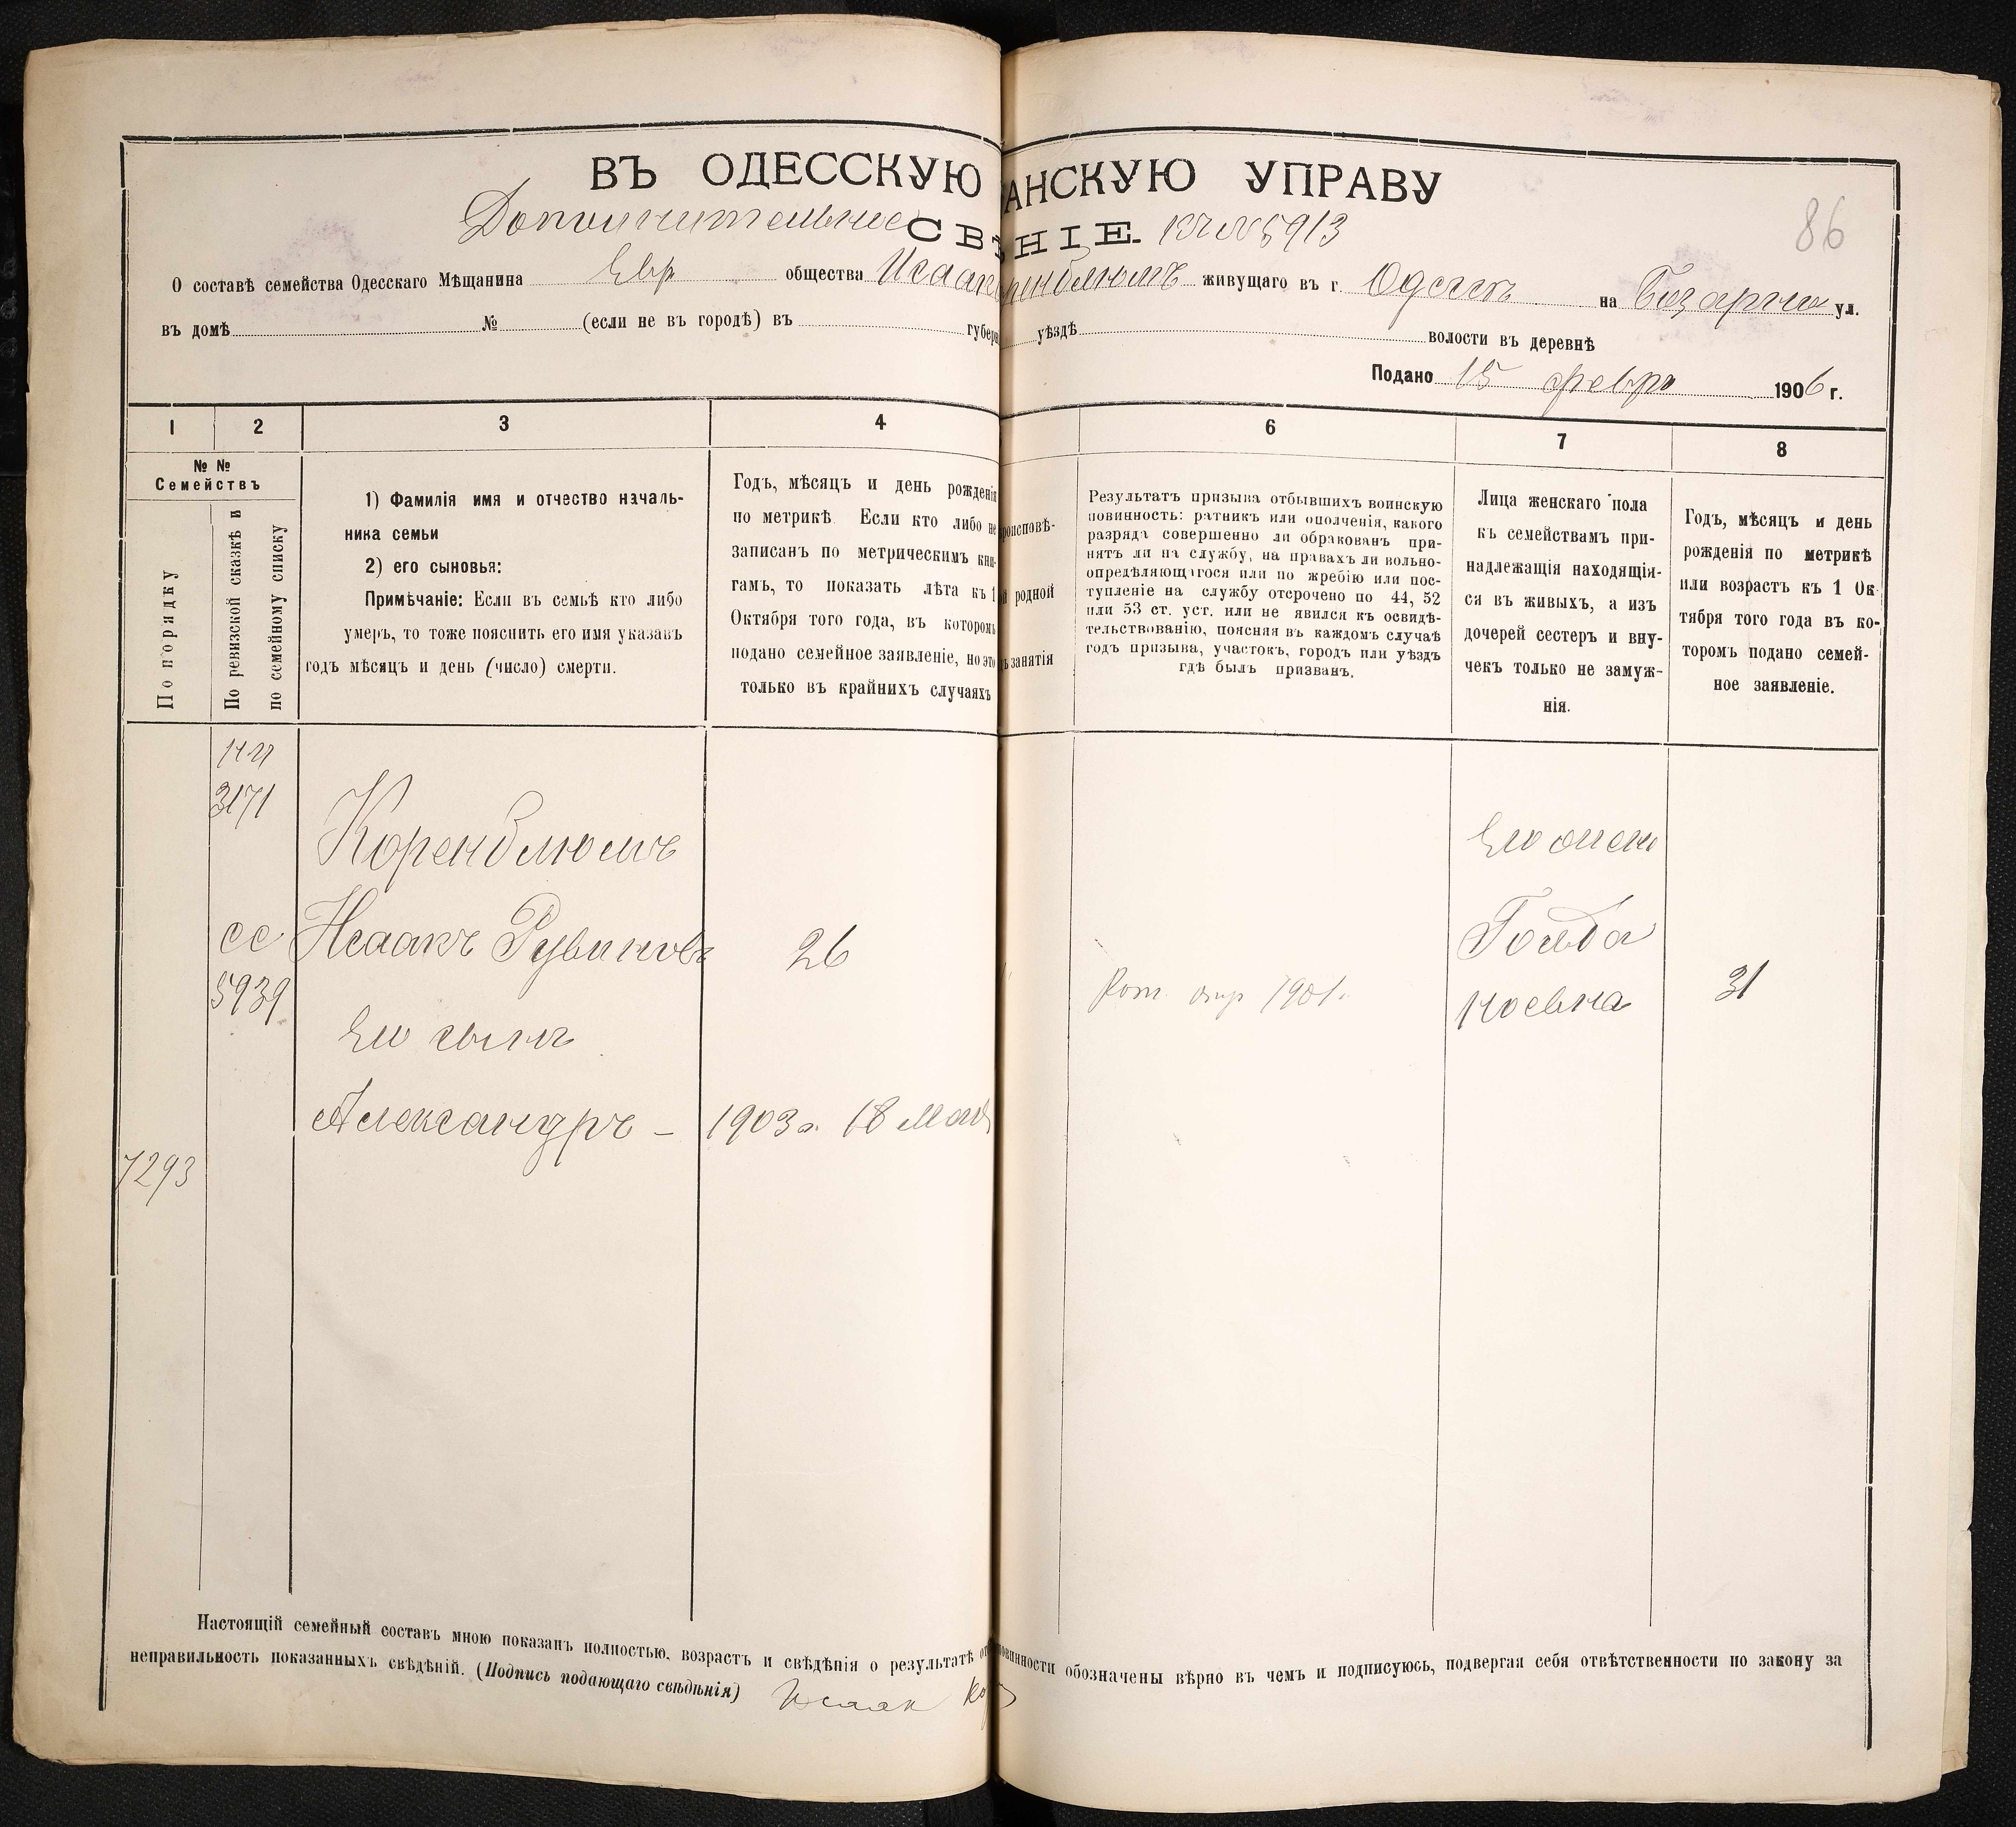 ВЪ ОДЕССКУЮ АНСКУЮ УПРАВУ
Дополнительное СВѢ НІЕ. 5913
86
О составѣ семейства Одесскаго Мѣщанина Евр общества Исаак ренблюмъ живущаго въ г Одессѣ на Базарной ул.
въ домѣ № (если не въ городѣ) въ губерн уѣздѣ волости въ деревнѣ
Подано 15 февр 1906 г.
1 2 3 4 6 7 8
№ №
Семействъ
По порядку
По ревизской сказкѣ и
по семейному списку
1) Фамилія имя и отчество началь-
ника семьи
2) его сыновья:
Примѣчаніе: Если въ семьѣ кто либо
умеръ, то тоже пояснить его имя указавъ
годъ мѣсяцъ и день (число) смерти.
Годъ, мѣсяцъ и день рожденія
по метрикѣ Если кто либо не
записанъ по метрическимъ кни-
гамъ, то показать лѣта къ 1
Октября того года, въ которомъ
подано семейное заявленіе, но это
только въ крайнихъ случаяхъ
роисповѣ-
й родной
ъ занятія
Результатъ призыва отбывшихъ воинскую
повинность: ратникъ или ополченія, какого
разряда совершенно ли обракованъ при-
нятъ ли на службу, на правахъ ли вольно-
опредѣляющагося или по жребію или пос-
тупленіе на службу отсрочено по 44, 52
или 53 ст. уст. или не явился къ освидѣ-
тельствованію, поясняя въ каждомъ случаѣ
годъ призыва, участокъ, городъ или уѣздъ
гдѣ былъ призванъ.
Лица женскаго пола
къ семействамъ при-
надлежащія находящія-
ся въ живыхъ, а изъ
дочерей сестеръ и вну-
чекъ только не замуж-
нія.
Годъ, мѣсяцъ и день
рожденія по метрикѣ
или возрастъ къ 1 Ок-
тября того года въ ко-
торомъ подано семей-
ное заявленіе.
3171
Коренблюмъ
Его жена
сс Исаакъ Рувиновъ 26
Гольда
5939
Рат. опр 1901.
Ноевна 31
Его сынъ
Александръ – 1903 г. 18 Мая
7293
Настоящій семейный составъ мною показанъ полностью, возрастъ и свѣдѣнія о результатѣ от повинности обозначены вѣрно въ чемъ и подписуюсь, подвергая себя отвѣтственности по закону за
неправильность показанныхъ свѣдѣній. (Подпись подающаго свѣдѣнія) Исаак Ко